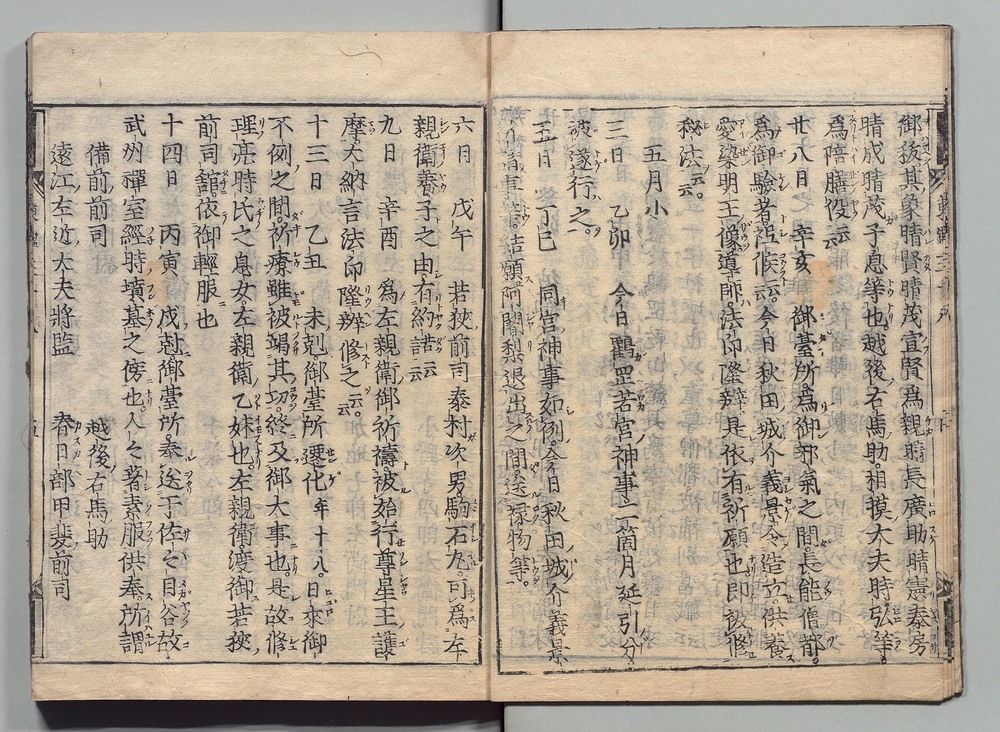 御秡其象晴賢晴茂宣賢爲親晴長廣助晴憲泰房
晴成晴茂子息等也越後右馬助相摸大夫時弘等
爲陪膳役云云
廿八日 辛亥 御臺所爲御邪氣之間長能僧都
爲御驗者祗候云云今日秋田城介義景令造立供養
愛染明王像導師法印隆辨是依有祈願也即被修
秘法云云
五月小
三日 乙卯 今日鶴岡若宮神事二箇月延引分
被遂行之
五日 丁巳 同宮神事如例今日秋田城介義景
結願阿闍梨退出之間送祿物等
六日 戊午 若狹前司泰村次男駒石丸可爲左
親衛養子之由有約諾云云
九日 辛酉 爲左親衛御祈禱被始行尊星王護
摩大納言法印隆辨修之云云
十三日 乙丑 未剋御臺所遷化年十八日來御
不例之間祈療雖被竭其功終及御大事也是故修
理亮時氏之息女左親衛乙妹也左親衛渡御若狹
前司舘依御輕服也
十四日 丙寅 戌剋御臺所奉送于佐々目谷故
武州禪室經時墳墓之傍也人々著素服供奉所謂
備前前司 越後右馬助
遠江左近大夫將監 春日部甲斐前司